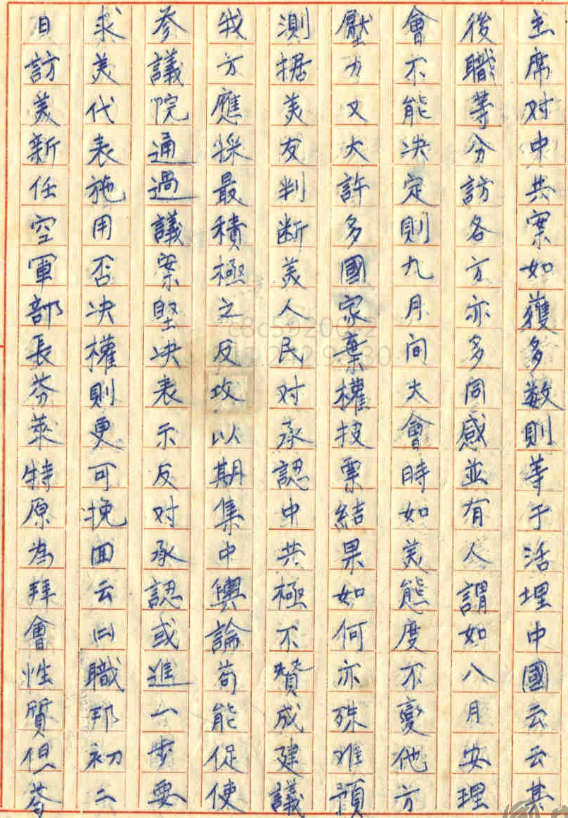 主席对中共案如獲多数則等于活埋中國云云其
後職等分訪各方亦多同感並有人謂如八月安理
會不能决定則九月间大會時如美態度不变他方
壓力又大許多國家棄權投票結果如何亦殊难預
測据美友判断美人民对承認中共極不贊成建議
我方應採最積極之反攻以期集中輿論苟能促使
参議院通過議案堅决表示反对承認或進一步要
求美代表施用否决權則更可挽回云㈣職邦初二
日訪美新任空軍部長芬萊特原為拜會性質但芬